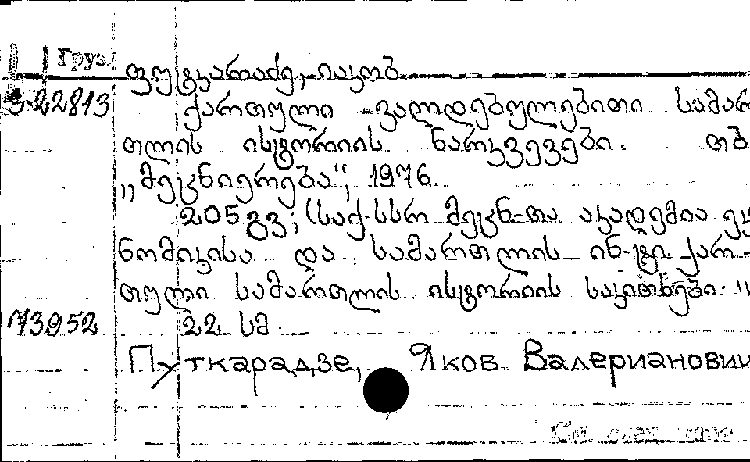 Груз.
ფუტკარაძე, იაკობ
22813 ქართული ვალდებულებითი სამარ
თლის ისტორიის ნარკვევები. თბ
„მეცნიერება“, 1976.
205 გვ; (საქ. სსრ მეცნ-თა აკადემია ეკ
ნომიკისა და სამართლის ინ-ტი. ქარ-
თული სამართლის ისტორიის საკითხები.
73952 22 სმ
Путкарадзе, Яков Валерианович